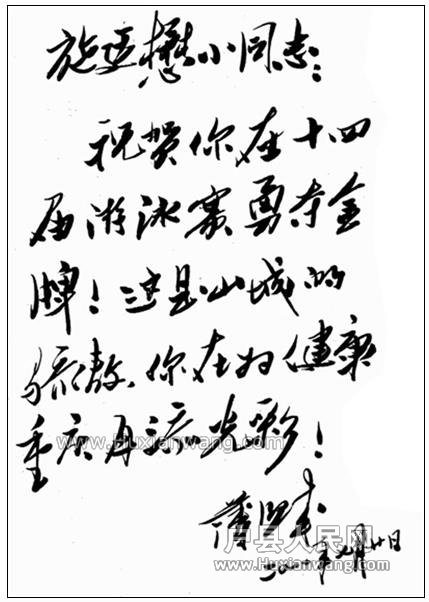 施廷懋小同志:
祝贺你在十四
届游泳赛勇夺金
牌!这是山城的
骄傲.你在为健康
重庆再添光彩!
www.Huxianwang.com
户县人民网
www.Huxianwang.com